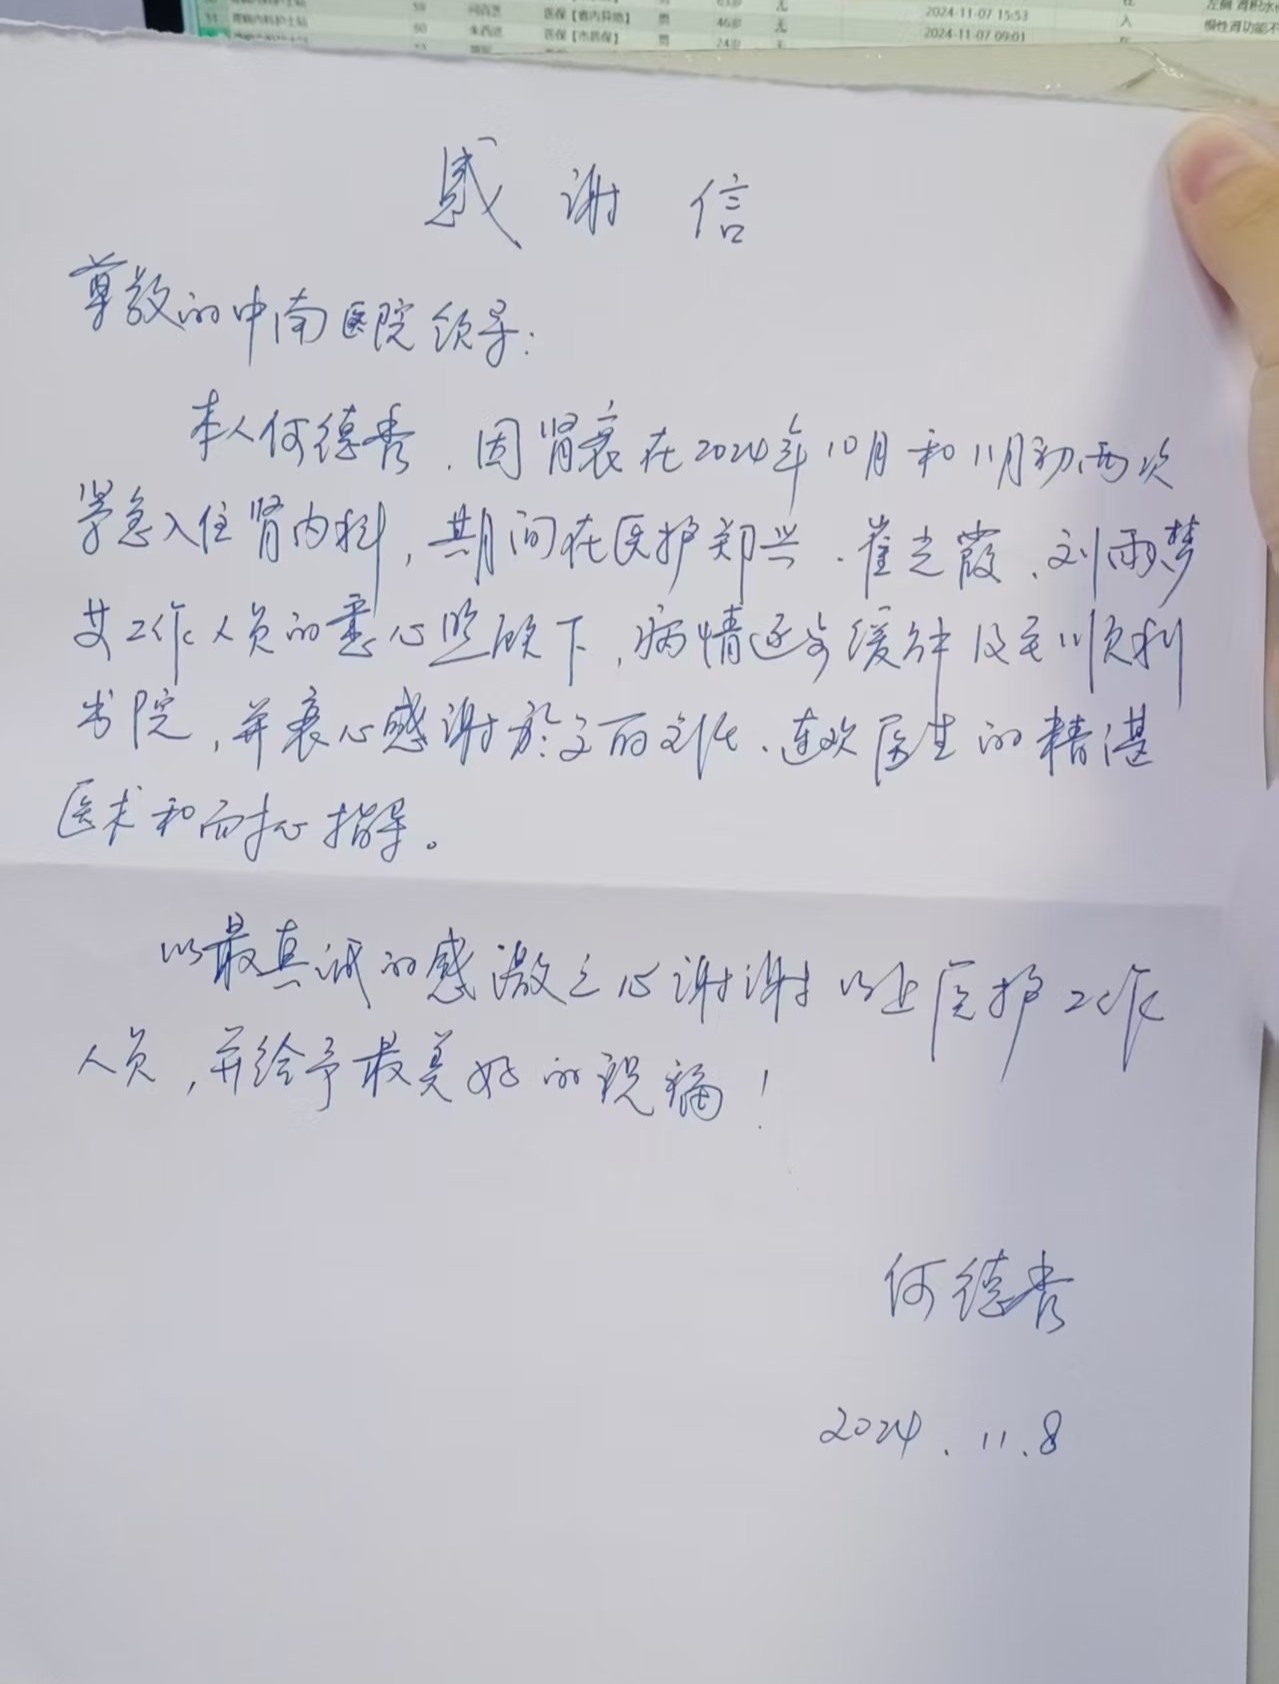 59
医保【省内异地】 男 46岁 无
2024-11-07 15:53
入
60
医保【市医保】 男 24岁 无
2024-11-07 09:01
慢性肾功能不
感谢信
尊敬的中南医院领导：
本人何德秀，因肾衰在2024年10月和11月初，两次
紧急入住肾内科，期间在医护郑兴、崔光霞、刘雨梦
等工作人员的悉心照顾下，病情逐步缓解及至顺利
出院，并衷心感谢 主任、连欢医生的精湛
医术和而心指导。
以最真诚的感激之心谢谢以上医护工作
人员，并给予最美好的祝福！
何德秀
2024.11.8